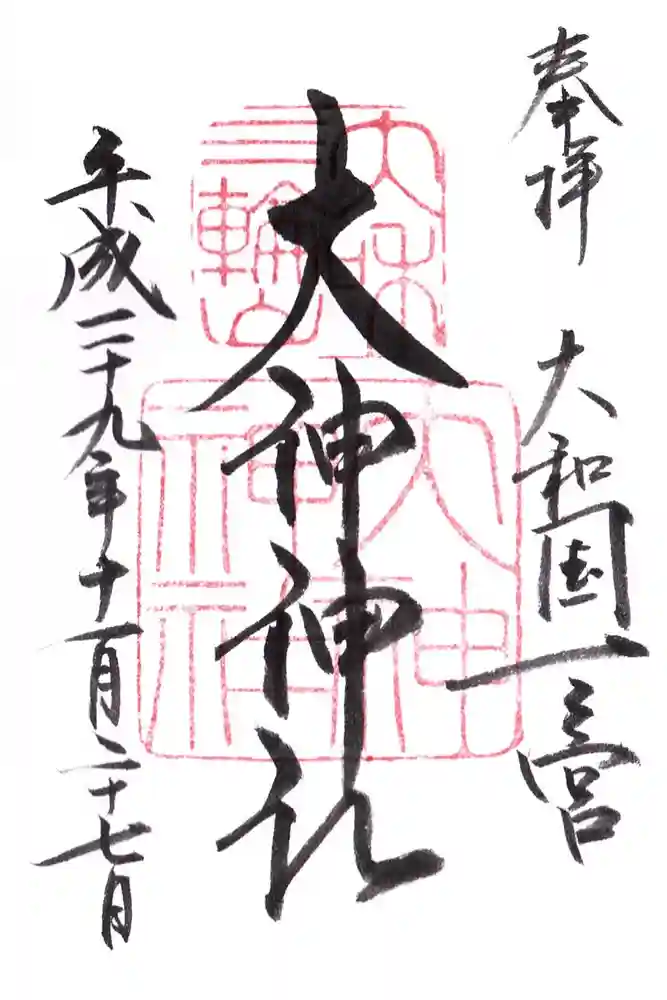 奉拝
大和国一之宮
大神神社
平成二十九年十一月二十七日
三輪山
大神
神社